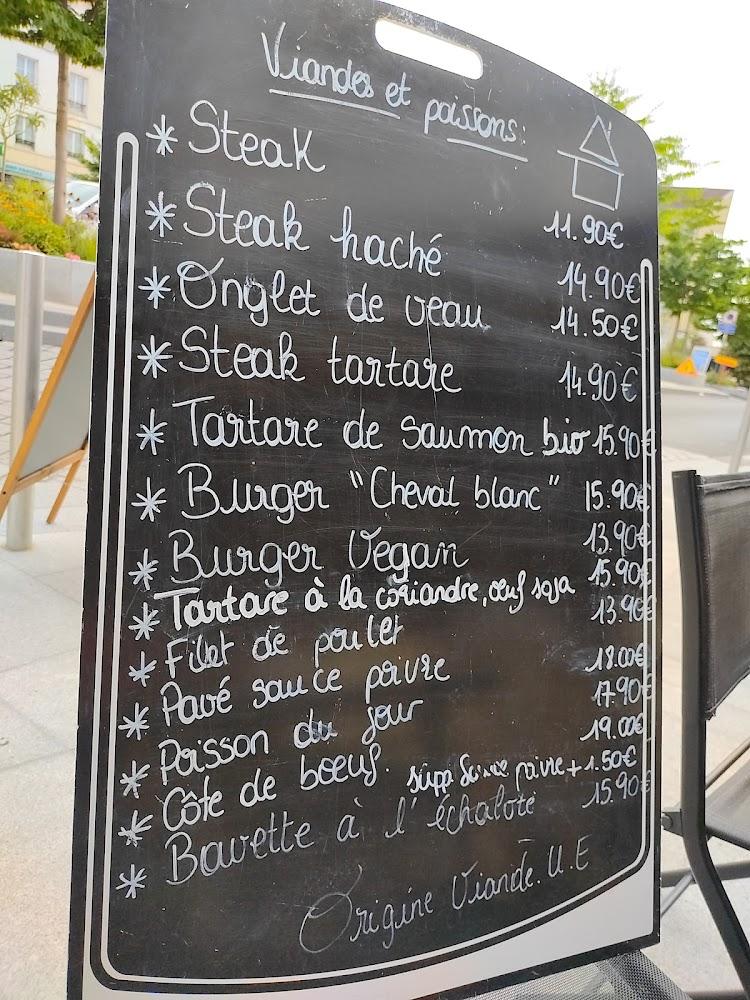 Viandes et poissons:
* Steak 11.90€
* Steak haché 14.90€
* Onglet de veau 14.50€
* Steak tartare 14.90€
* Tartare de saumon bio 15.90€
* Burger "Cheval blanc" 15.90€
* Burger Vegan 13.90€
* Tartare à la coriandre, oeuf soja 15.90€
* Filet de poulet 13.90€
* Pavé sauce poivre 18.00€
* Poisson du jour 17.90€
* Côte de boeuf. 19.00€
supp sauce poivre + 1.50€
* Bavette à l'échalote 15.90€
Origine Viande. U.E